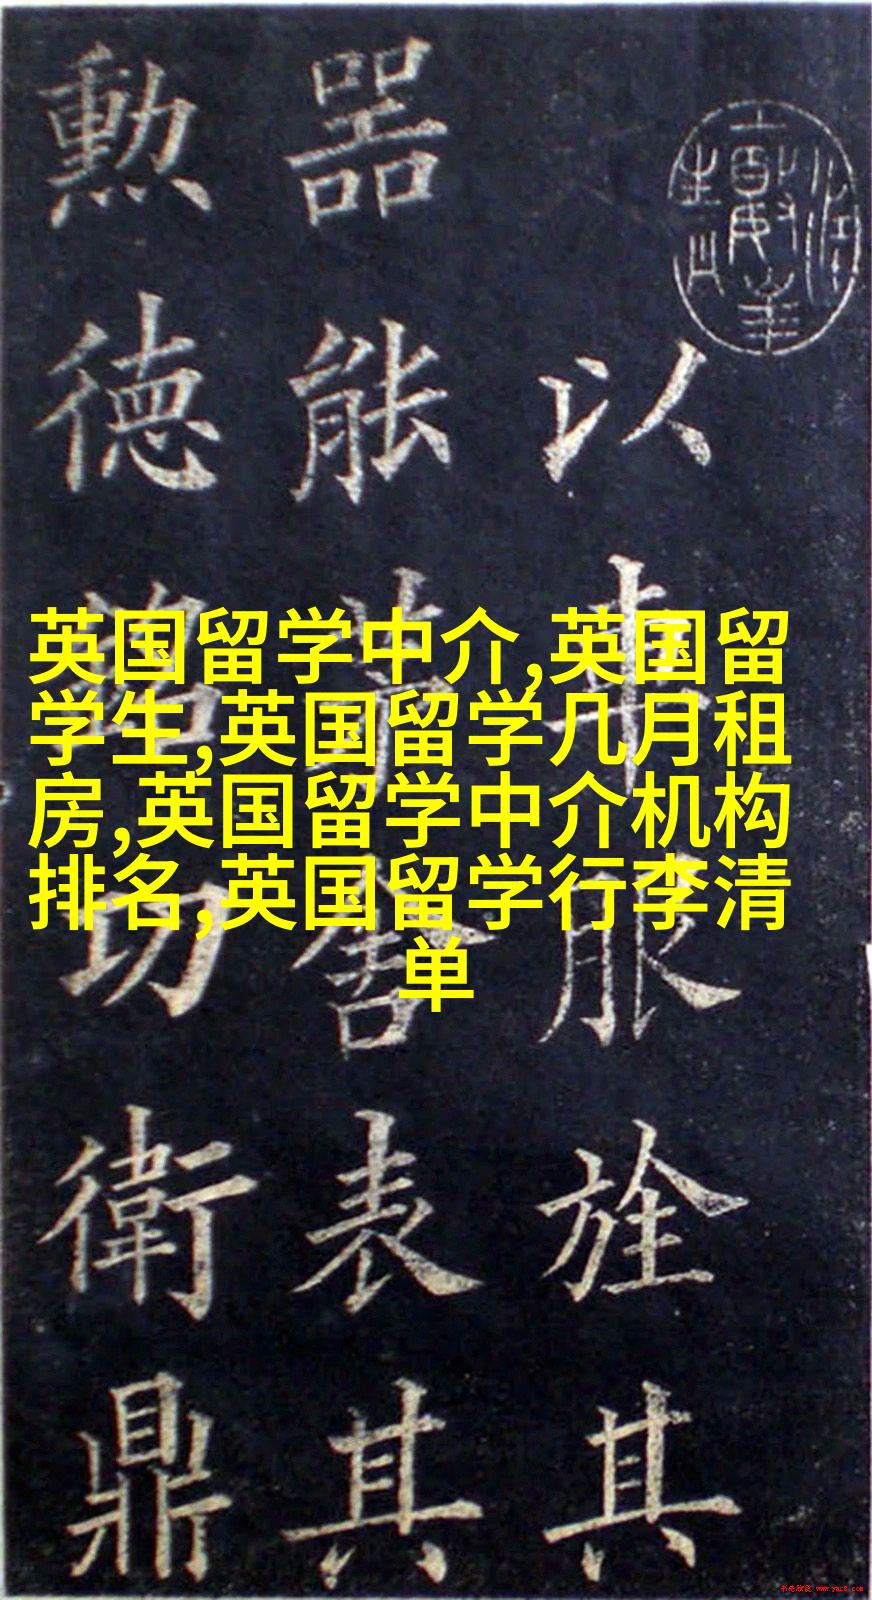 以車服旌其
器能表其
勲德功衛鼎
英国留学中介,英国留
学生,英国留学几月租
房,英国留学中介机构
排名,英国留学行李清
单
书法欣赏 www.yac8.com